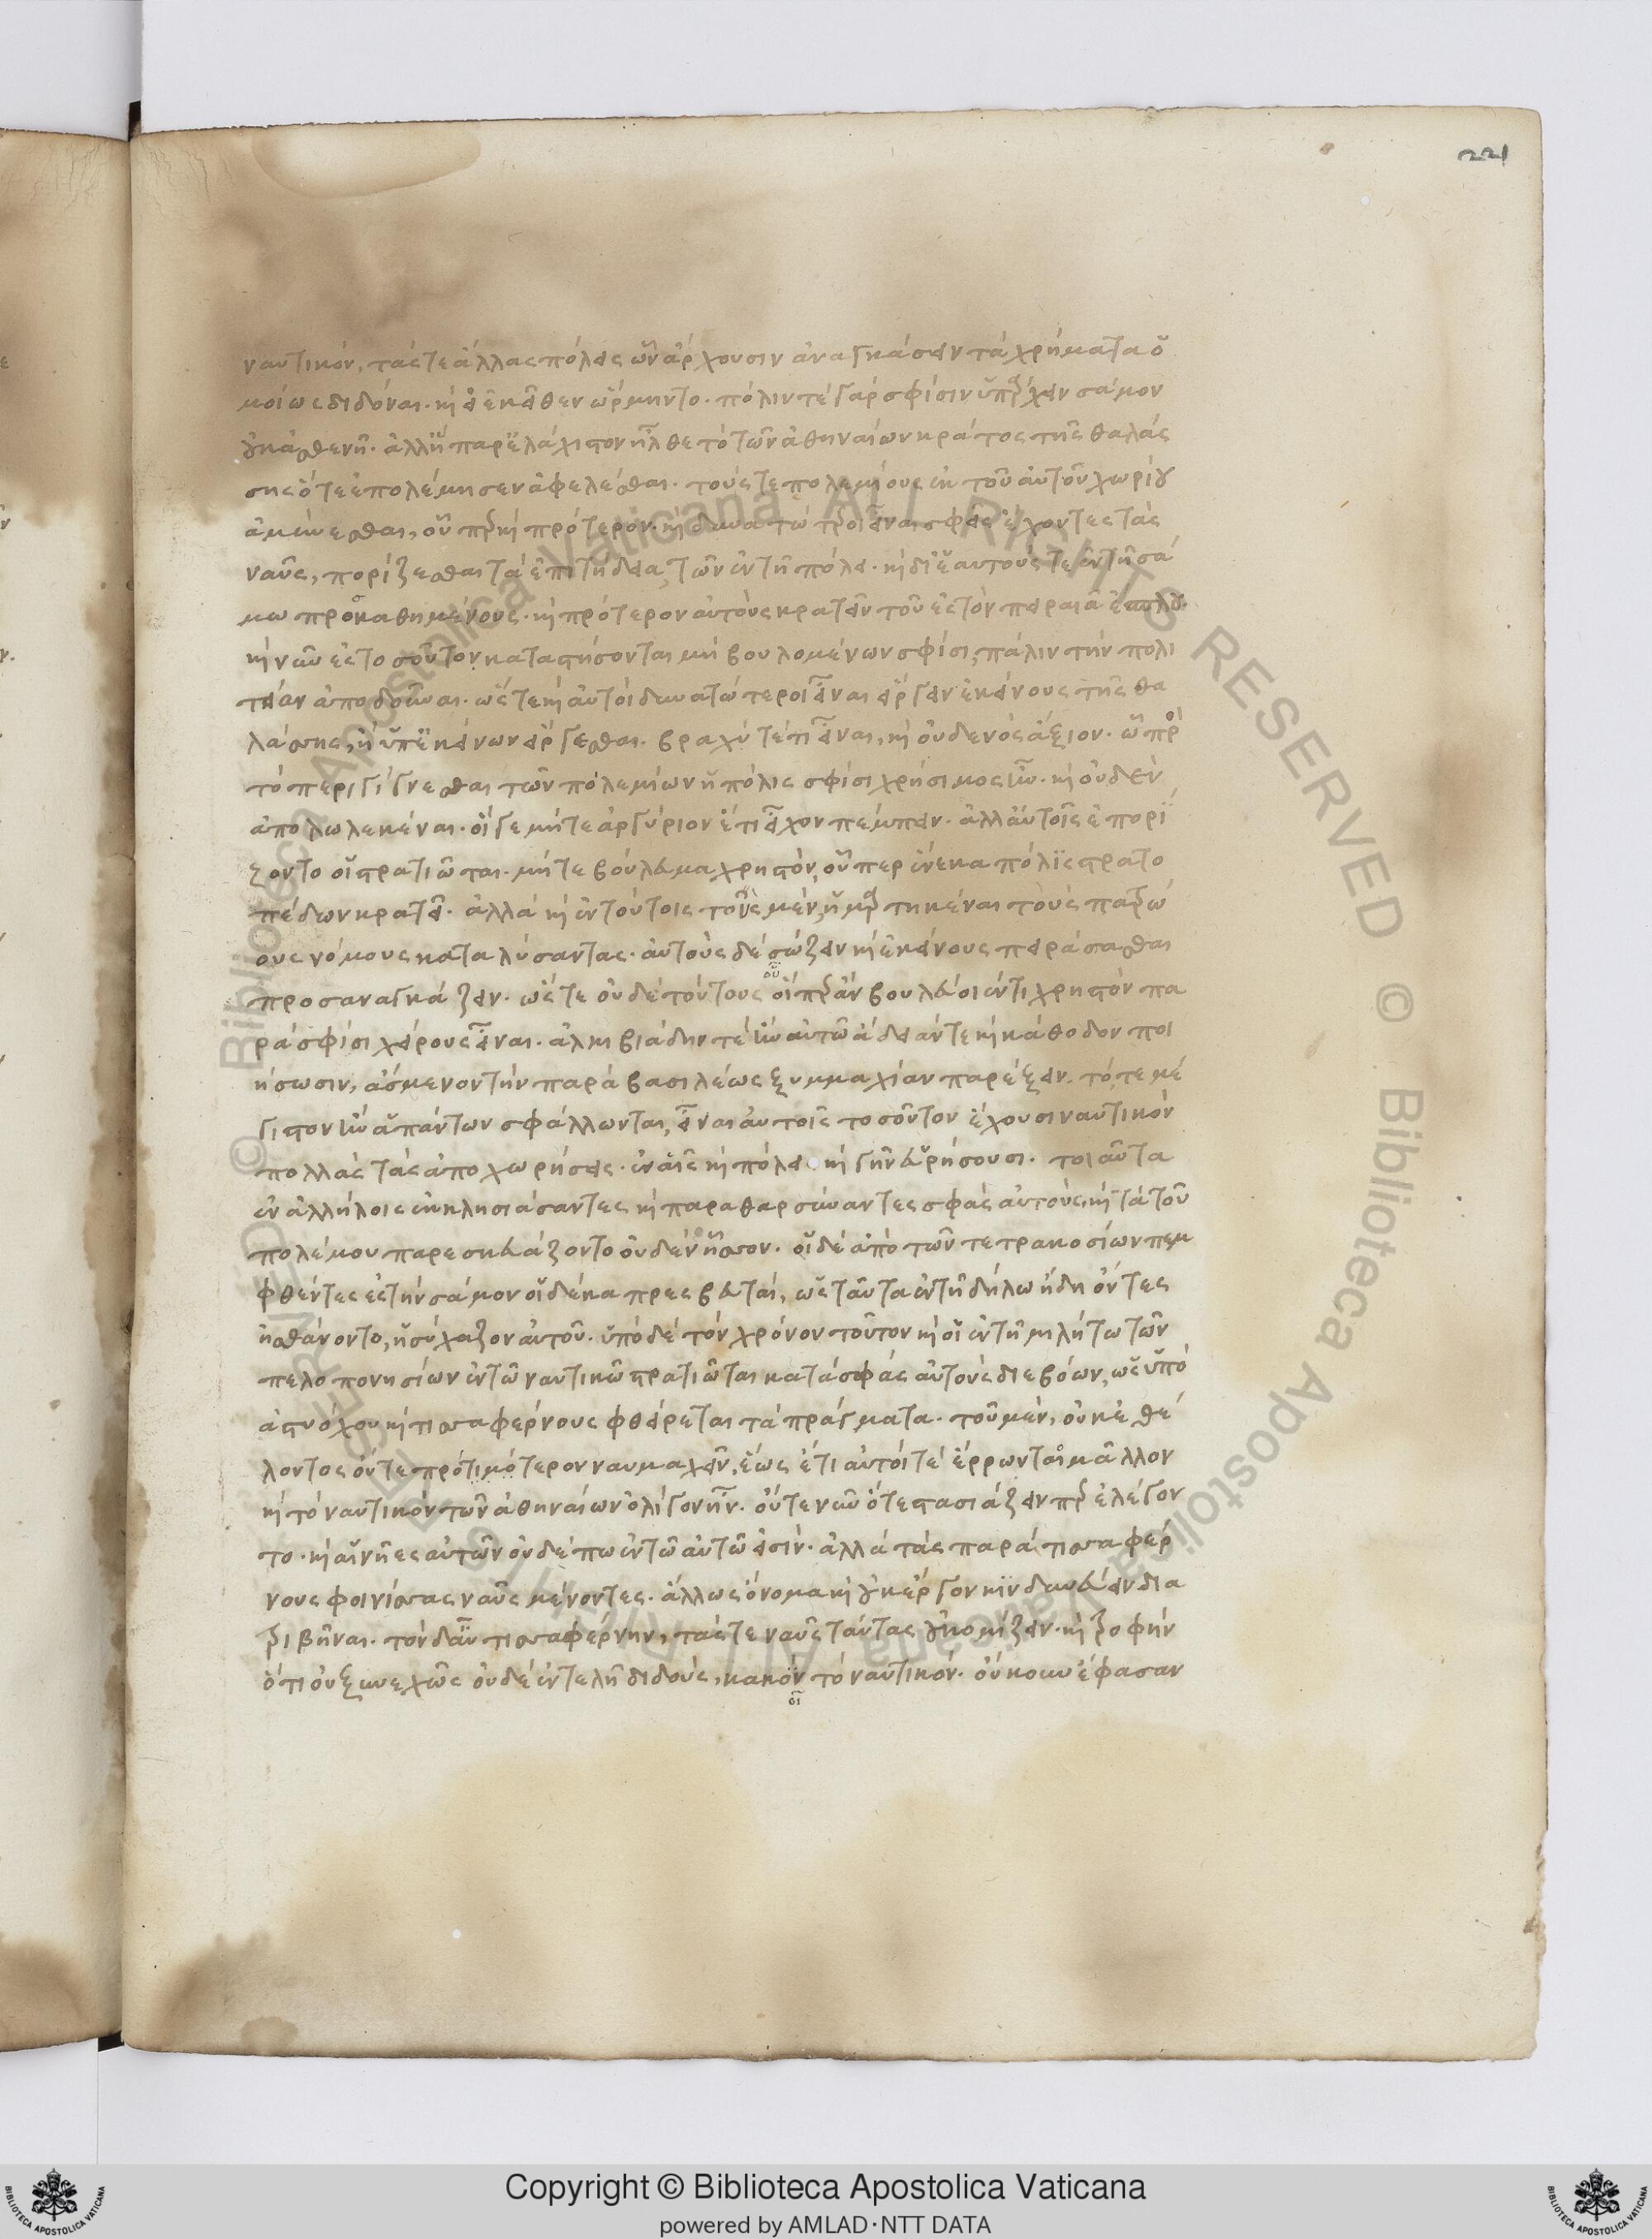 221
ναυτικὸν, τάς τε ἄλλας πόλεις ὧν ἄρχουσιν ἀναγκάσειν τὰ χρήματα ὁ
μοίως διδόναι. καὶ εἰ ἐκεῖθεν ὥρμηντο. πόλιν τὲ γάρ σφίσιν ὑπάρχειν σάμον
οὐκ ἀσθενῆ. ἀλλ' ἣ παρ' ἐλάχιστον ἦλθε τὸ τῶν ἀθηναίων κράτος τῆς θαλάσ
σης ὅτε ἐπολέμησεν ἀφελέσθαι. τούς τε πολεμίους ἐκ τοῦ αὐτοῦ χωρίου
ἀμύνεσθαι, οὗπερ καὶ πρότερον. καὶ δυνατώτεροι εἶναι σφεῖς ἔχοντες τὰς
ναῦς, πορίζεσθαι τὰ ἐπιτήδεια, τῶν ἐν τῇ πόλει. καὶ δι' ἑαυτούς τε ἐν τῇ σά
μω προκαθημένους. καὶ πρότερον αὐτοὺς κρατεῖν τοῦ ἐς τὸν πειραιᾶ ἔσπλου.
καὶ νῦν ἐς τοσοῦτον καταστήσονται μὴ βουλομένων σφίσι, πάλιν τὴν πολι
τείαν ἀποδοῦναι. ὥστε καὶ αὐτοὶ δυνατώτεροι εἶναι εἴργειν ἐκείνους τῆς θα
λάσσης, ἢ ὑπ' ἐκείνων εἴργεσθαι. βραχύ τέ τι εἶναι, καὶ οὐδενὸς ἄξιον. ὧ πρὸ
τὸ περιγίγνεσθαι τῶν πολεμίων ἡ πόλις σφίσι χρήσιμος ἦν. καὶ οὐδὲν
ἀπολωλεκέναι. οἵ γε μήτε ἀργύριον ἔτι εἶχον πέμπειν. ἀλλ' αὐτοῖς ἐπορί
ζοντο οἱ στρατιῶται. μήτε βούλευμα χρηστὸν, οὗπερ ἕνεκα πόλις στρατο
πέδων κρατεῖ. ἀλλὰ καὶ ἐν τούτοις τοὺς μὲν, ἡμαρτηκέναι τοὺς πατρώ
ους νόμους καταλύσαντας. αὐτοὺς δὲ σώζειν καὶ ἐκείνους πειράσασθαι
προσαναγκάζειν. ὥστε οὐδὲ τούτους οἵπερ ἂν βουλεύοιέν τι χρηστὸν πα
ρὰ σφίσι χείρους εἶναι. ἀλκιβιάδην τὲ ἢν αὐτῶ ἄδειάν τε καὶ κάθοδον ποι
ήσωσιν, ἄσμενον τὴν παρὰ βασιλέως ξυμμαχίαν παρέξειν. τό, τε μέ
γιστον ἢν ἁπάντων σφάλλωνται, εἶναι αὐτοῖς τοσοῦτον ἔχουσι ναυτικὸν
πολλὰς τὰς ἀποχωρήσεις. ἐν αἷς καὶ πόλεις καὶ γῆν εὑρήσουσι. τοιαῦτα
ἐν ἀλλήλοις ἐκκλησιάσαντες καὶ παραθαρσύναντες σφᾶς αὐτοὺς, καὶ τὰ τοῦ
πολέμου παρεσκευάζοντο οὐδὲν ἧσσον. οἱ δὲ ἀπὸ τῶν τετρακοσίων πεμ
φθέντες ἐς τὴν σάμον οἱ δέκα πρεσβευταὶ, ὡς ταῦτα ἐν τῇ δήλω ἤδη ὄντες
ἠσθάνοντο, ἡσύχαζον αὐτοῦ. ὑπὸ δὲ τὸν χρόνον τοῦτον καὶ οἱ ἐν τῇ μιλήτω τῶν
πελοπονησίων ἐν τῶ ναυτικῶ στρατιῶται κατὰ σφᾶς αὐτοὺς διεβόων, ὡς ὑπὸ
ἀστυόχου καὶ τισσαφέρνους φθείρεται τὰ πράγματα. τοῦ μὲν, οὐκ ἐθέ
λοντος οὔτε πρότιμότερον ναυμαχεῖν, ἕως ἔτι αὐτοί τὲ ἔρρωνται μᾶλλον
καὶ τὸ ναυτικὸν τῶν ἀθηναίων ὀλίγον ἦν. οὔτε νῦν ὅτε στασιάζειν περ ἐλέγον
το. καὶ αἱ νῆες αὐτῶν οὐδέπω ἐν τῶ αὐτῶ εἰσίν. ἀλλὰ τὰς παρὰ τισσαφέρ
νους φοινίσσας ναῦς μένοντες. ἄλλως ὄνομα καὶ οὐκ ἔργον κινδυνεύειν δια
τριβῆναι. τὸν δ' αὖ τισσαφέρνην, τάς τε ναῦς ταύτας οὐ κομίζειν. καὶ τροφὴν
ὅτι οὐ ξυνεχῶς οὐδὲ ἐντελῆ διδοὺς, κακοῖ τὸ ναυτικόν. οὔκουν ἔφασαν
οῖ
© Biblioteca Apostolica Vaticana ALL RIGHTS RESERVED
Copyright © Biblioteca Apostolica Vaticana
powered by AMLAD・NTT DATA